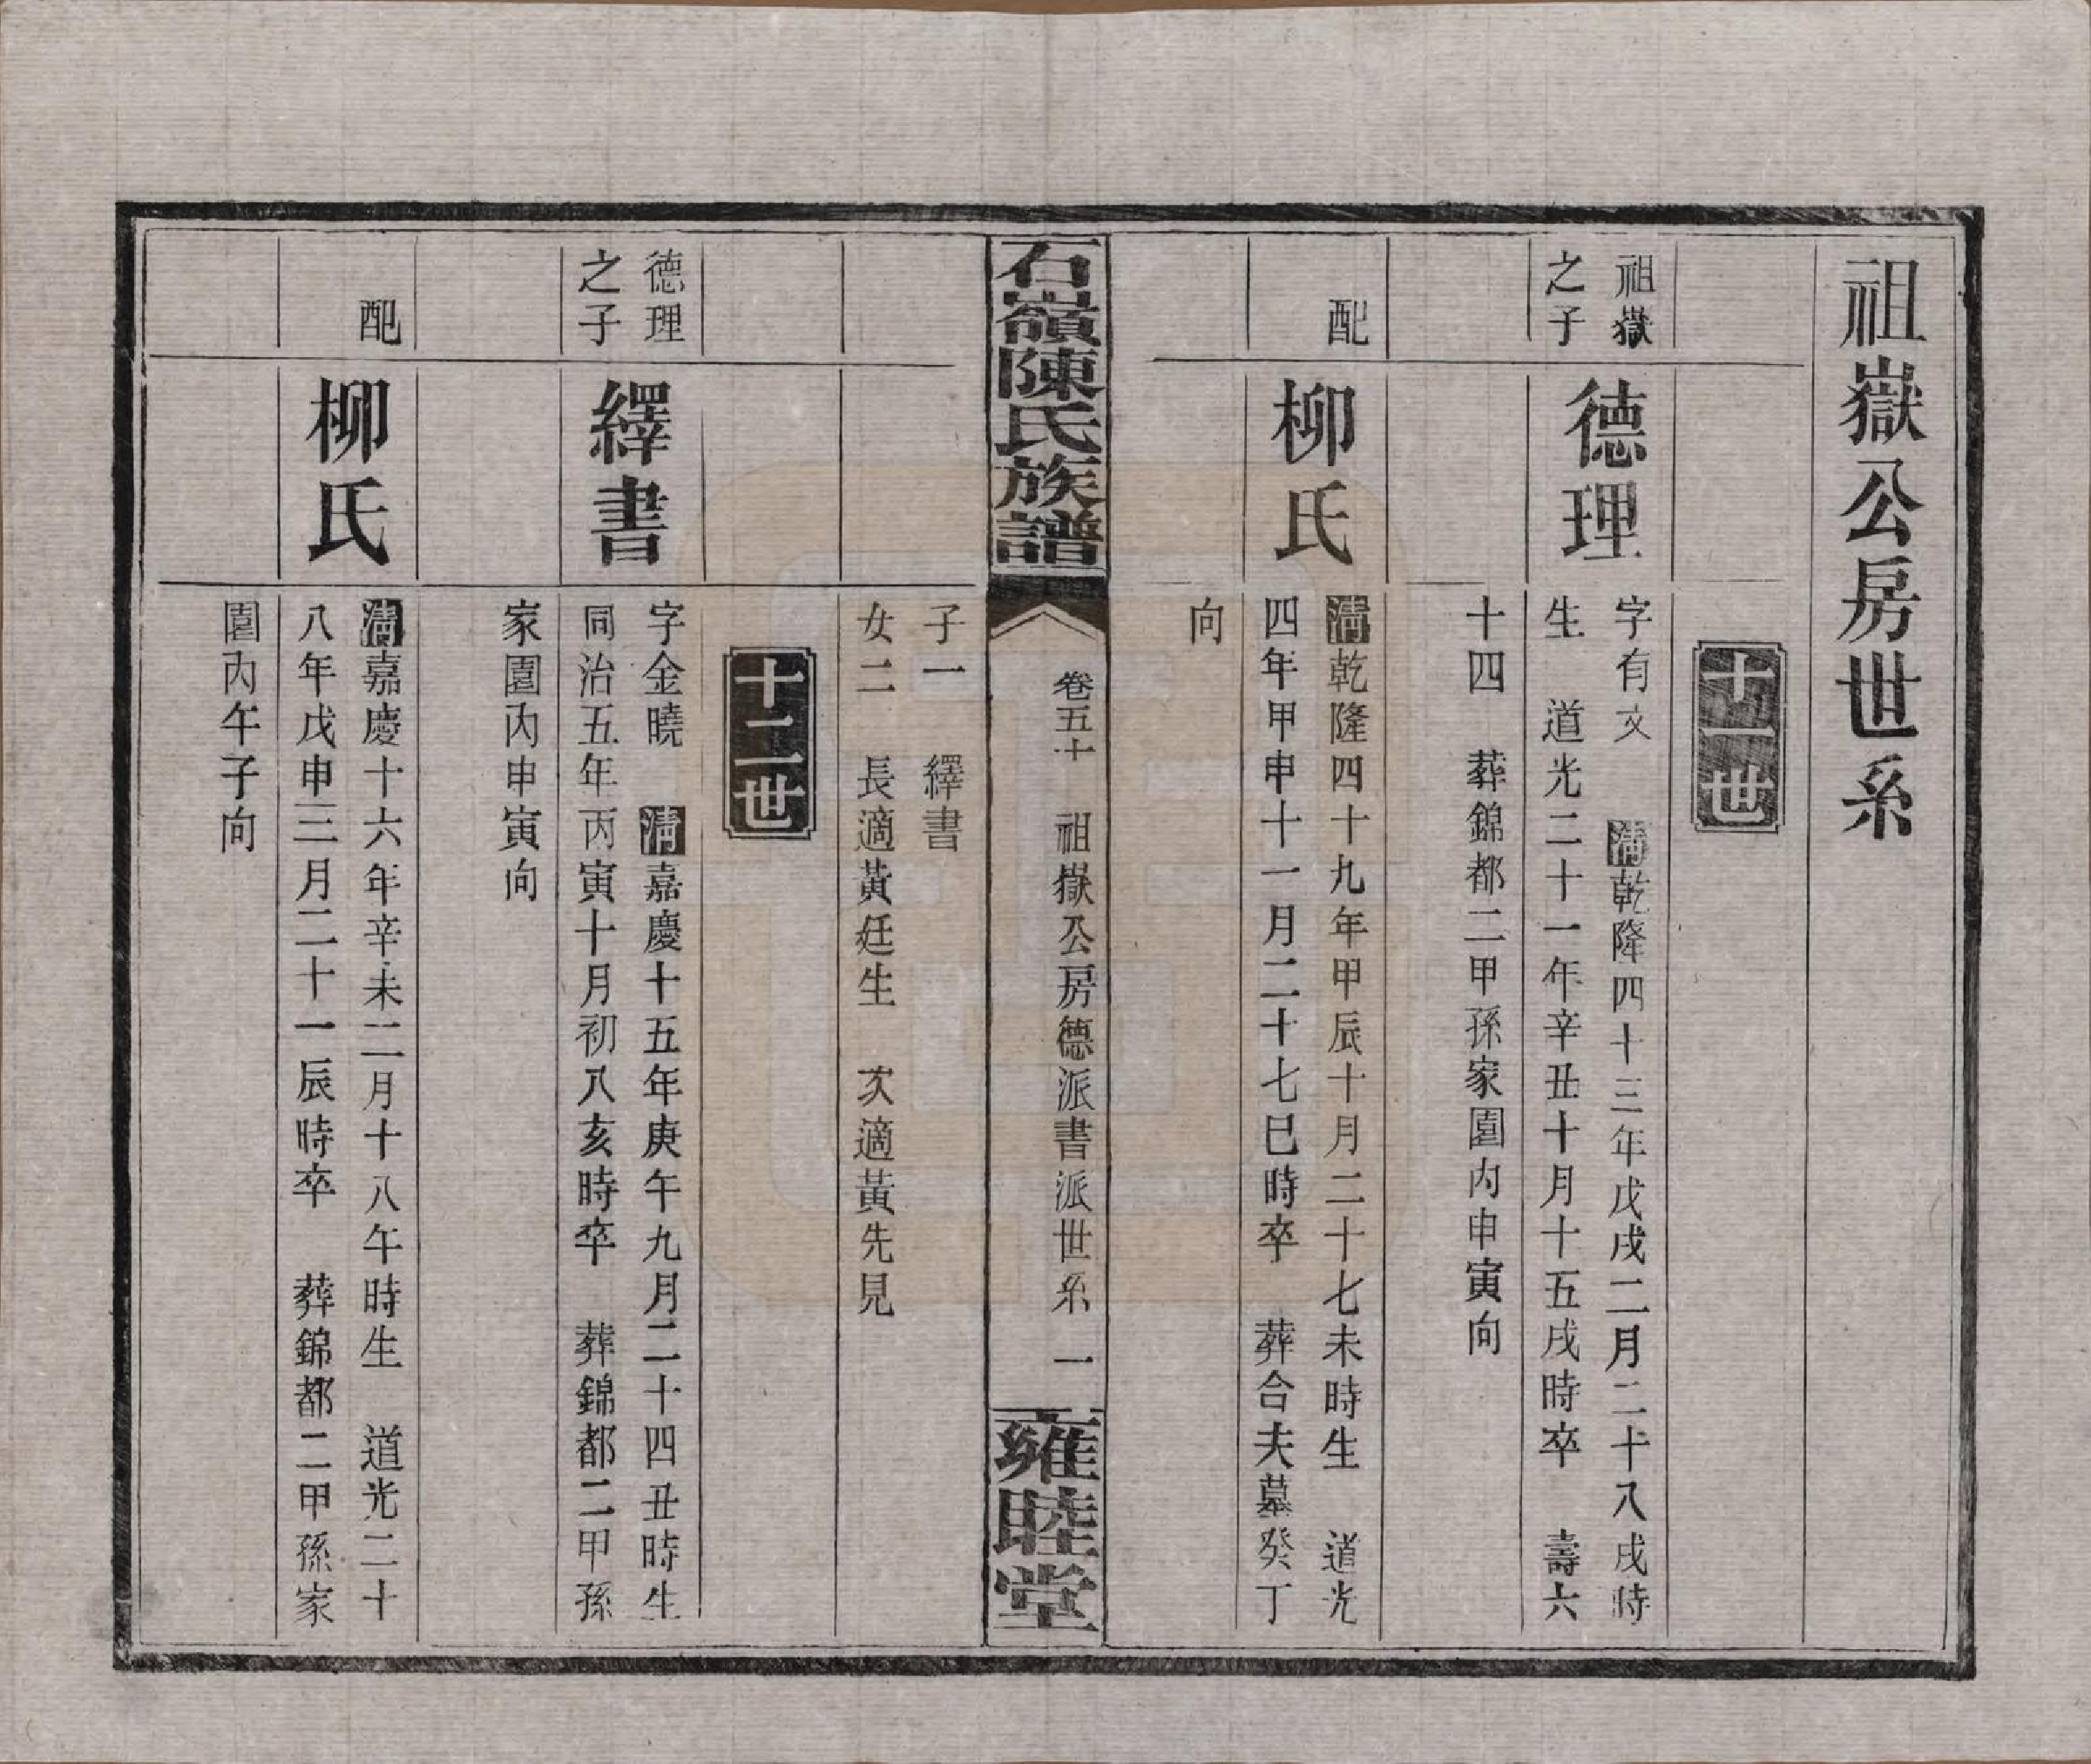 祖嶽公房世系
十一世
祖嶽
之子
德理
字有文　清乾隆四十三年戊戌二月二十八戌時
生　道光二十一年辛丑十月十五戌時卒　壽六
十四　葬錦都二甲孫家園內申寅向
配
柳氏
清乾隆四十九年甲辰十月二十七未時生　道光
四年甲申十一月二十七巳時卒　葬合夫墓癸丁
向
石嶺陳氏族譜
卷五十　祖嶽公房德派書派世系　一
雍睦堂
子一　繹書
女二　長適黃廷生　次適黃先見
十二世
德理
之子
繹書
字金曉　清嘉慶十五年庚午九月二十四丑時生
同治五年丙寅十月初八亥時卒　葬錦都二甲孫
家園內申寅向
配
柳氏
清嘉慶十六年辛未二月十八午時生　道光二十
八年戊申三月二十一辰時卒　葬錦都二甲孫家
園內午子向